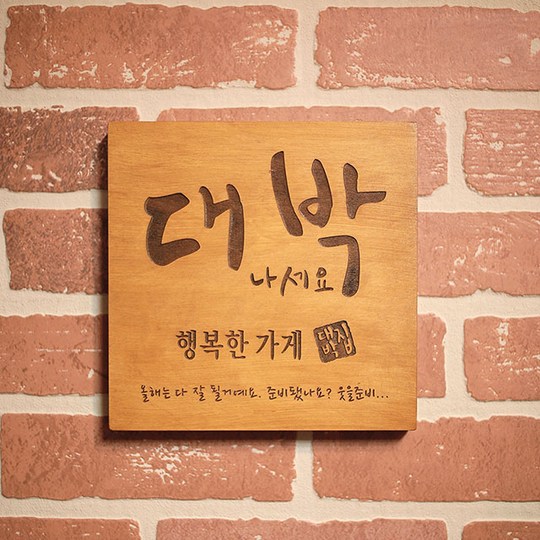 대박
나세요
행복한 가게 대박집
올해는 다 잘 될거예요. 준비됐나요? 웃을준비...